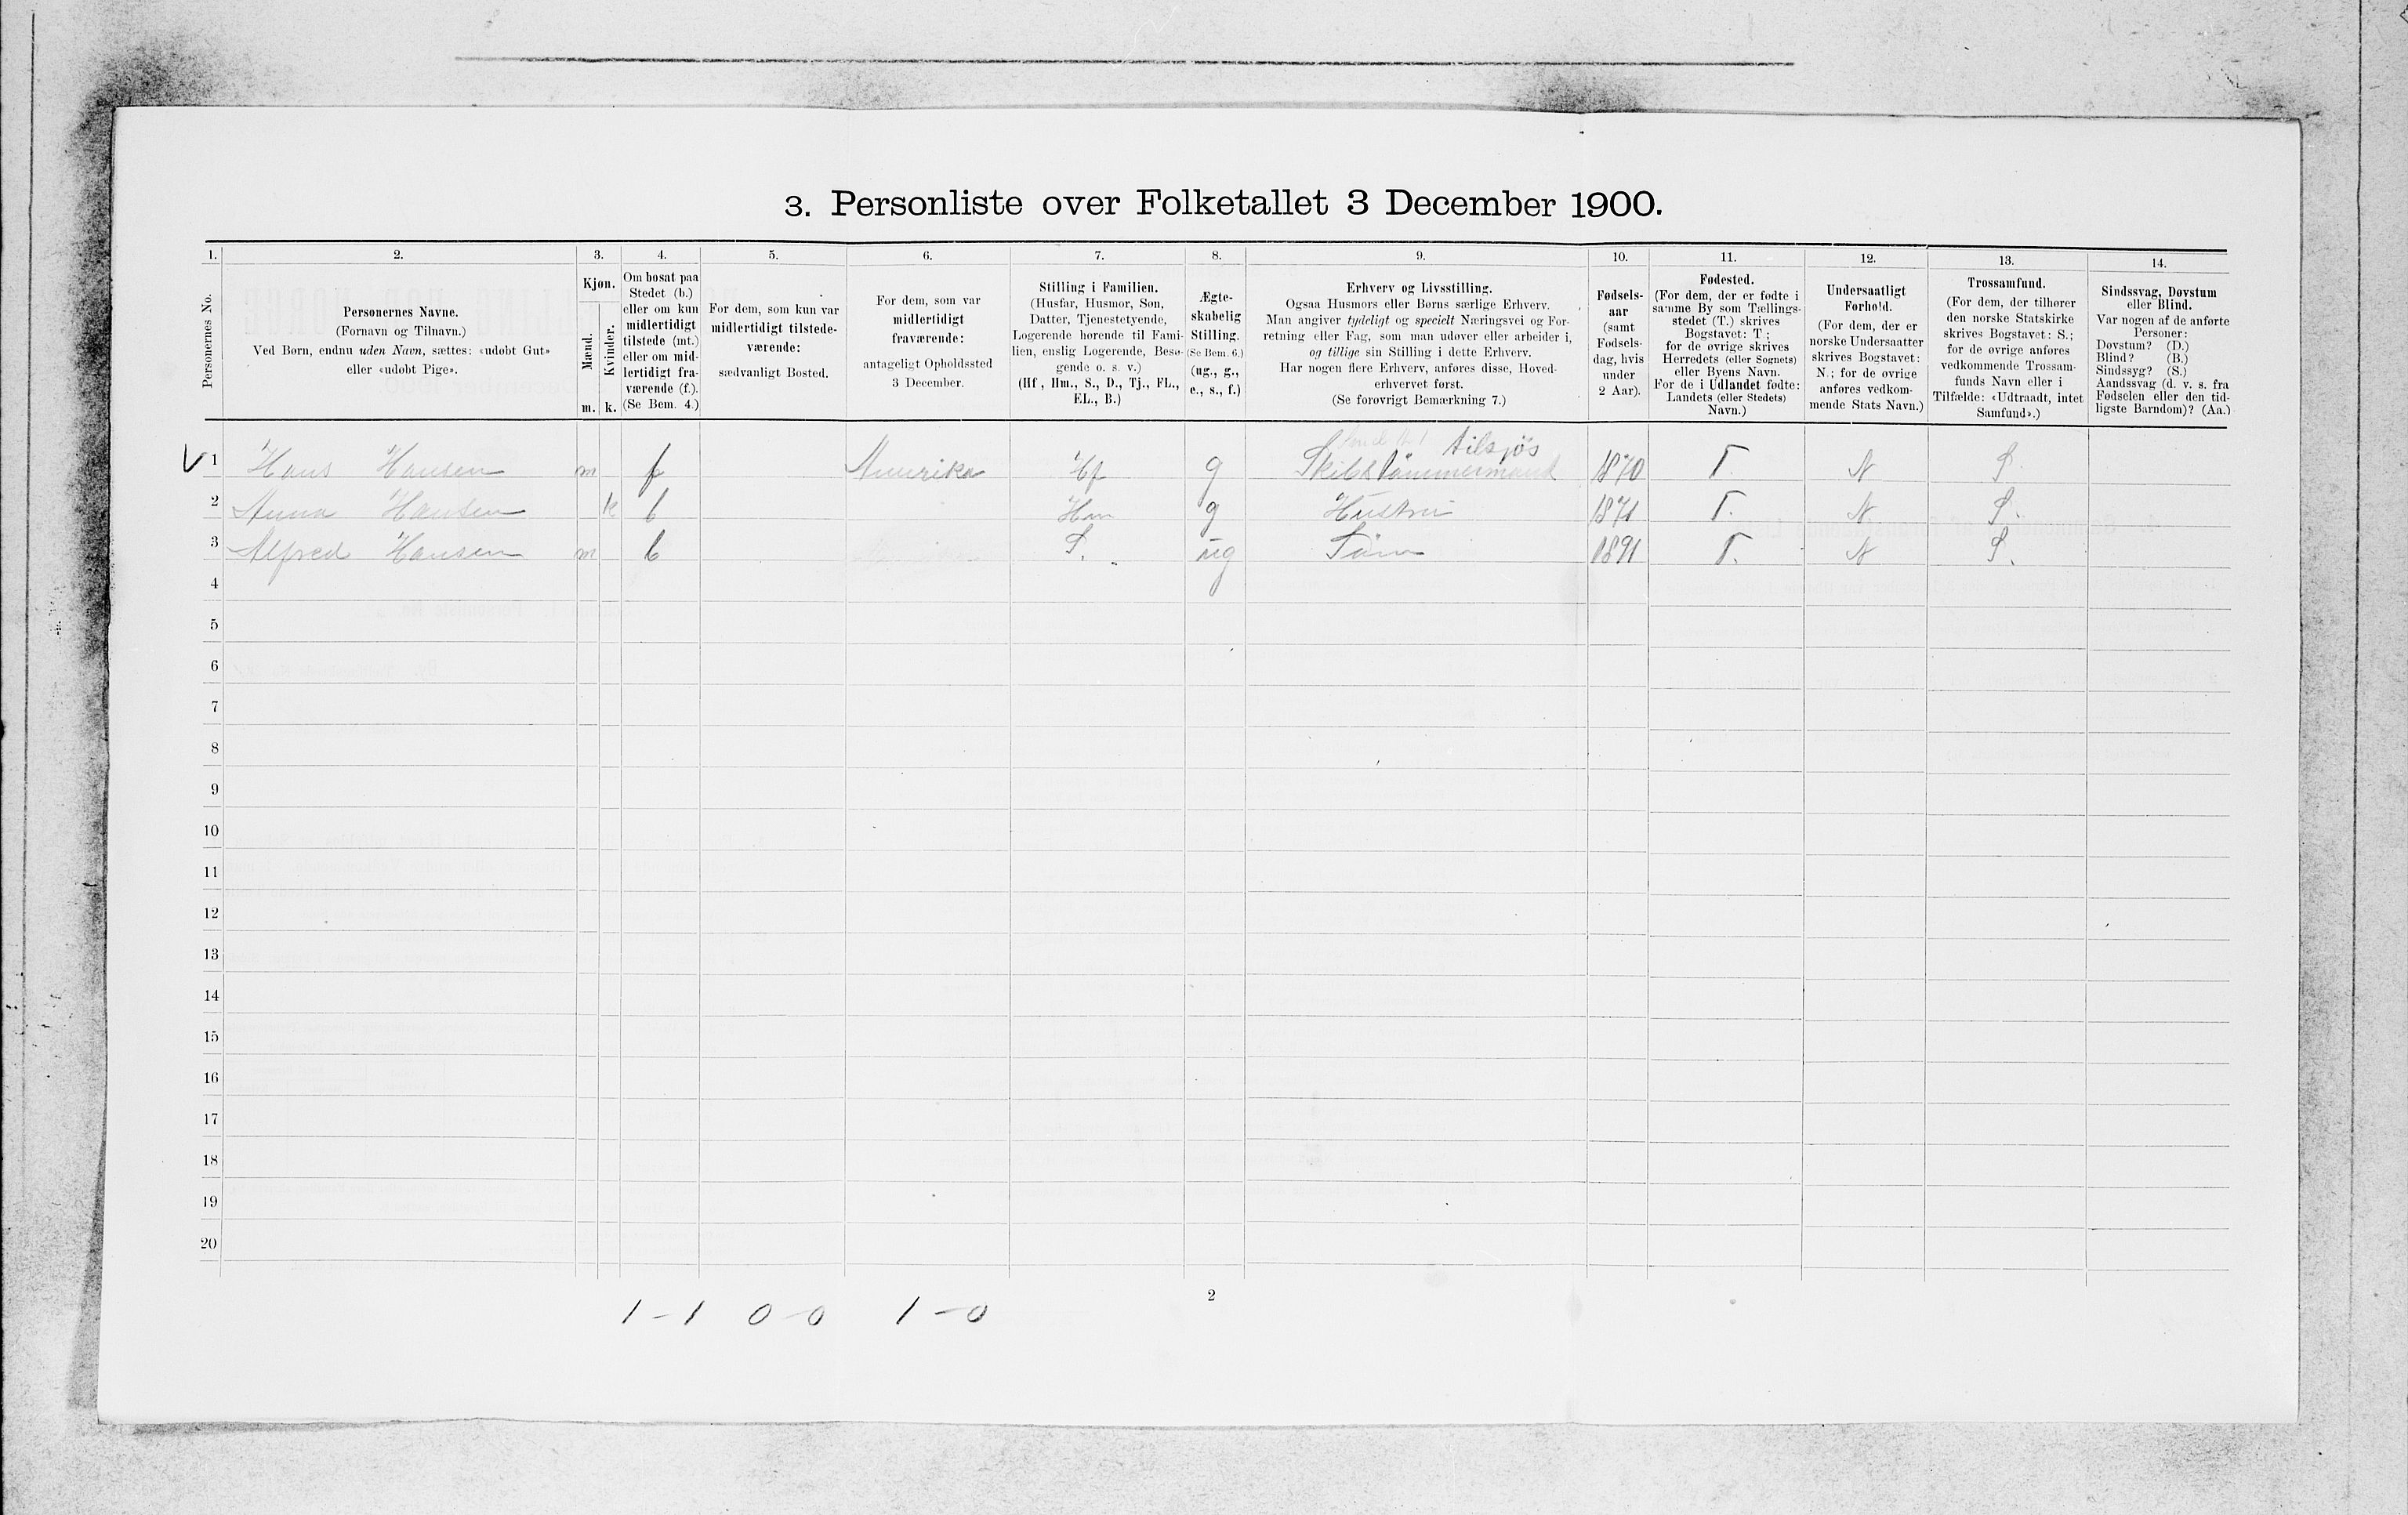 3. Personliste over Folketallet 3 December 1900.
1. 2. 3. 4. 5. 6. 7. 8. 9. 10. 11. 12. 13. 14.
Personernes No.
Personernes Navne.
(Fornavn og Tilnavn.)
Ved Børn, endnu uden Navn, sættes: «udøbt Gut»
eller «udøbt Pige».
Kjøn.
Mænd.
Kvinder.
m. k.
Om bosat paa
Stedet (b.)
eller om kun
midlertidigt
tilstede (mt.)
eller om mid-
lertidigt fra-
værende (f.).
(Se Bem. 4.)
For dem, som kun var
midlertidigt tilstede-
værende:
sædvanligt Bosted.
For dem, som var
midlertidigt
fraværende:
antageligt Opholdssted
3 December.
Stilling i Familien.
(Husfar, Husmor, Søn,
Datter, Tjenestetyende,
Logerende hørende til Fami-
lien, enslig Logerende, Besø-
gende o. s. v.)
(Hf., Hm., S., D., Tj., FL.,
EL., B.)
Ægte-
skabelig
Stilling.
(Se Bem. 6.)
(ug., g.,
e., s., f.)
Erhverv og Livsstilling.
Ogsaa Husmors eller Børns særlige Erhverv.
Man angiver tydeligt og specielt Næringsvei og For-
retning eller Fag, som man udøver eller arbeider i,
og tillige sin Stilling i dette Erhverv.
Har nogen flere Erhverv, anføres disse, Hoved-
erhvervet først.
(Se forøvrigt Bemærkning 7.)
Fødsels-
aar
(samt
Fødsels-
dag, hvis
under
2 Aar).
Fødested.
(For dem, der er fødte i
samme By som Tællings-
stedet (T.) skrives
Bogstavet: T;
for de øvrige skrives
Herredets (eller Sognets)
eller Byens Navn.
For de i Udlandet fødte:
Landets (eller Stedets)
Navn.)
Undersaatligt
Forhold.
(For dem, der er
norske Undersaatter
skrives Bogstavet:
N.; for de øvrige
anføres vedkom-
mende Stats Navn.)
Trossamfund.
(For dem, der tilhører
den norske Statskirke
skrives Bogstavet: S.;
for de øvrige anføres
vedkommende Trossam-
funds Navn eller i
Tilfælde: «Udtraadt, intet
Samfund».)
Sindssvag, Døvstum
eller Blind.
Var nogen af de anførte
Personer:
Døvstum? (D.)
Blind? (B.)
Sindssyg? (S.)
Aandssvag (d. v. s. fra
Fødselen eller den tid-
ligste Barndom)? (Aa.)
tilsjøs
V 1 Hans Hansen m f Amerika Hf g Skibstømmermand 1870 T. N S
2 Anna Hansen k b Hm g Hustru 1871 T. N S.
3 Alfred Hansen m b S. ug Søn 1891 T. N S.
4
5
6
7
8
9
10
11
12
13
14
15
16
17
18
19
20
2
1-1 0-0 1-0